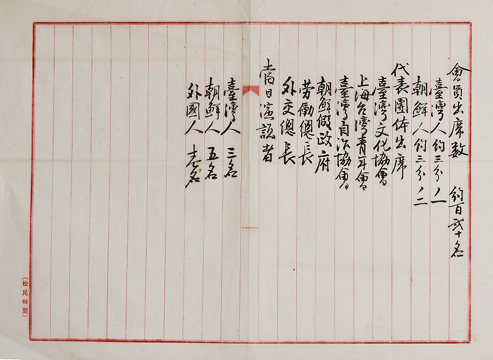 會員出席數 約百弐十名
臺灣人約三分ノ一
朝鮮人約三分ノ二
代表團体出席
臺灣文化協會
上海台灣青年會
臺灣自治協會
朝鮮假政府
労働總長
外交總長
當日演説者
臺灣人 三名
朝鮮人 五名
外國人 壱名